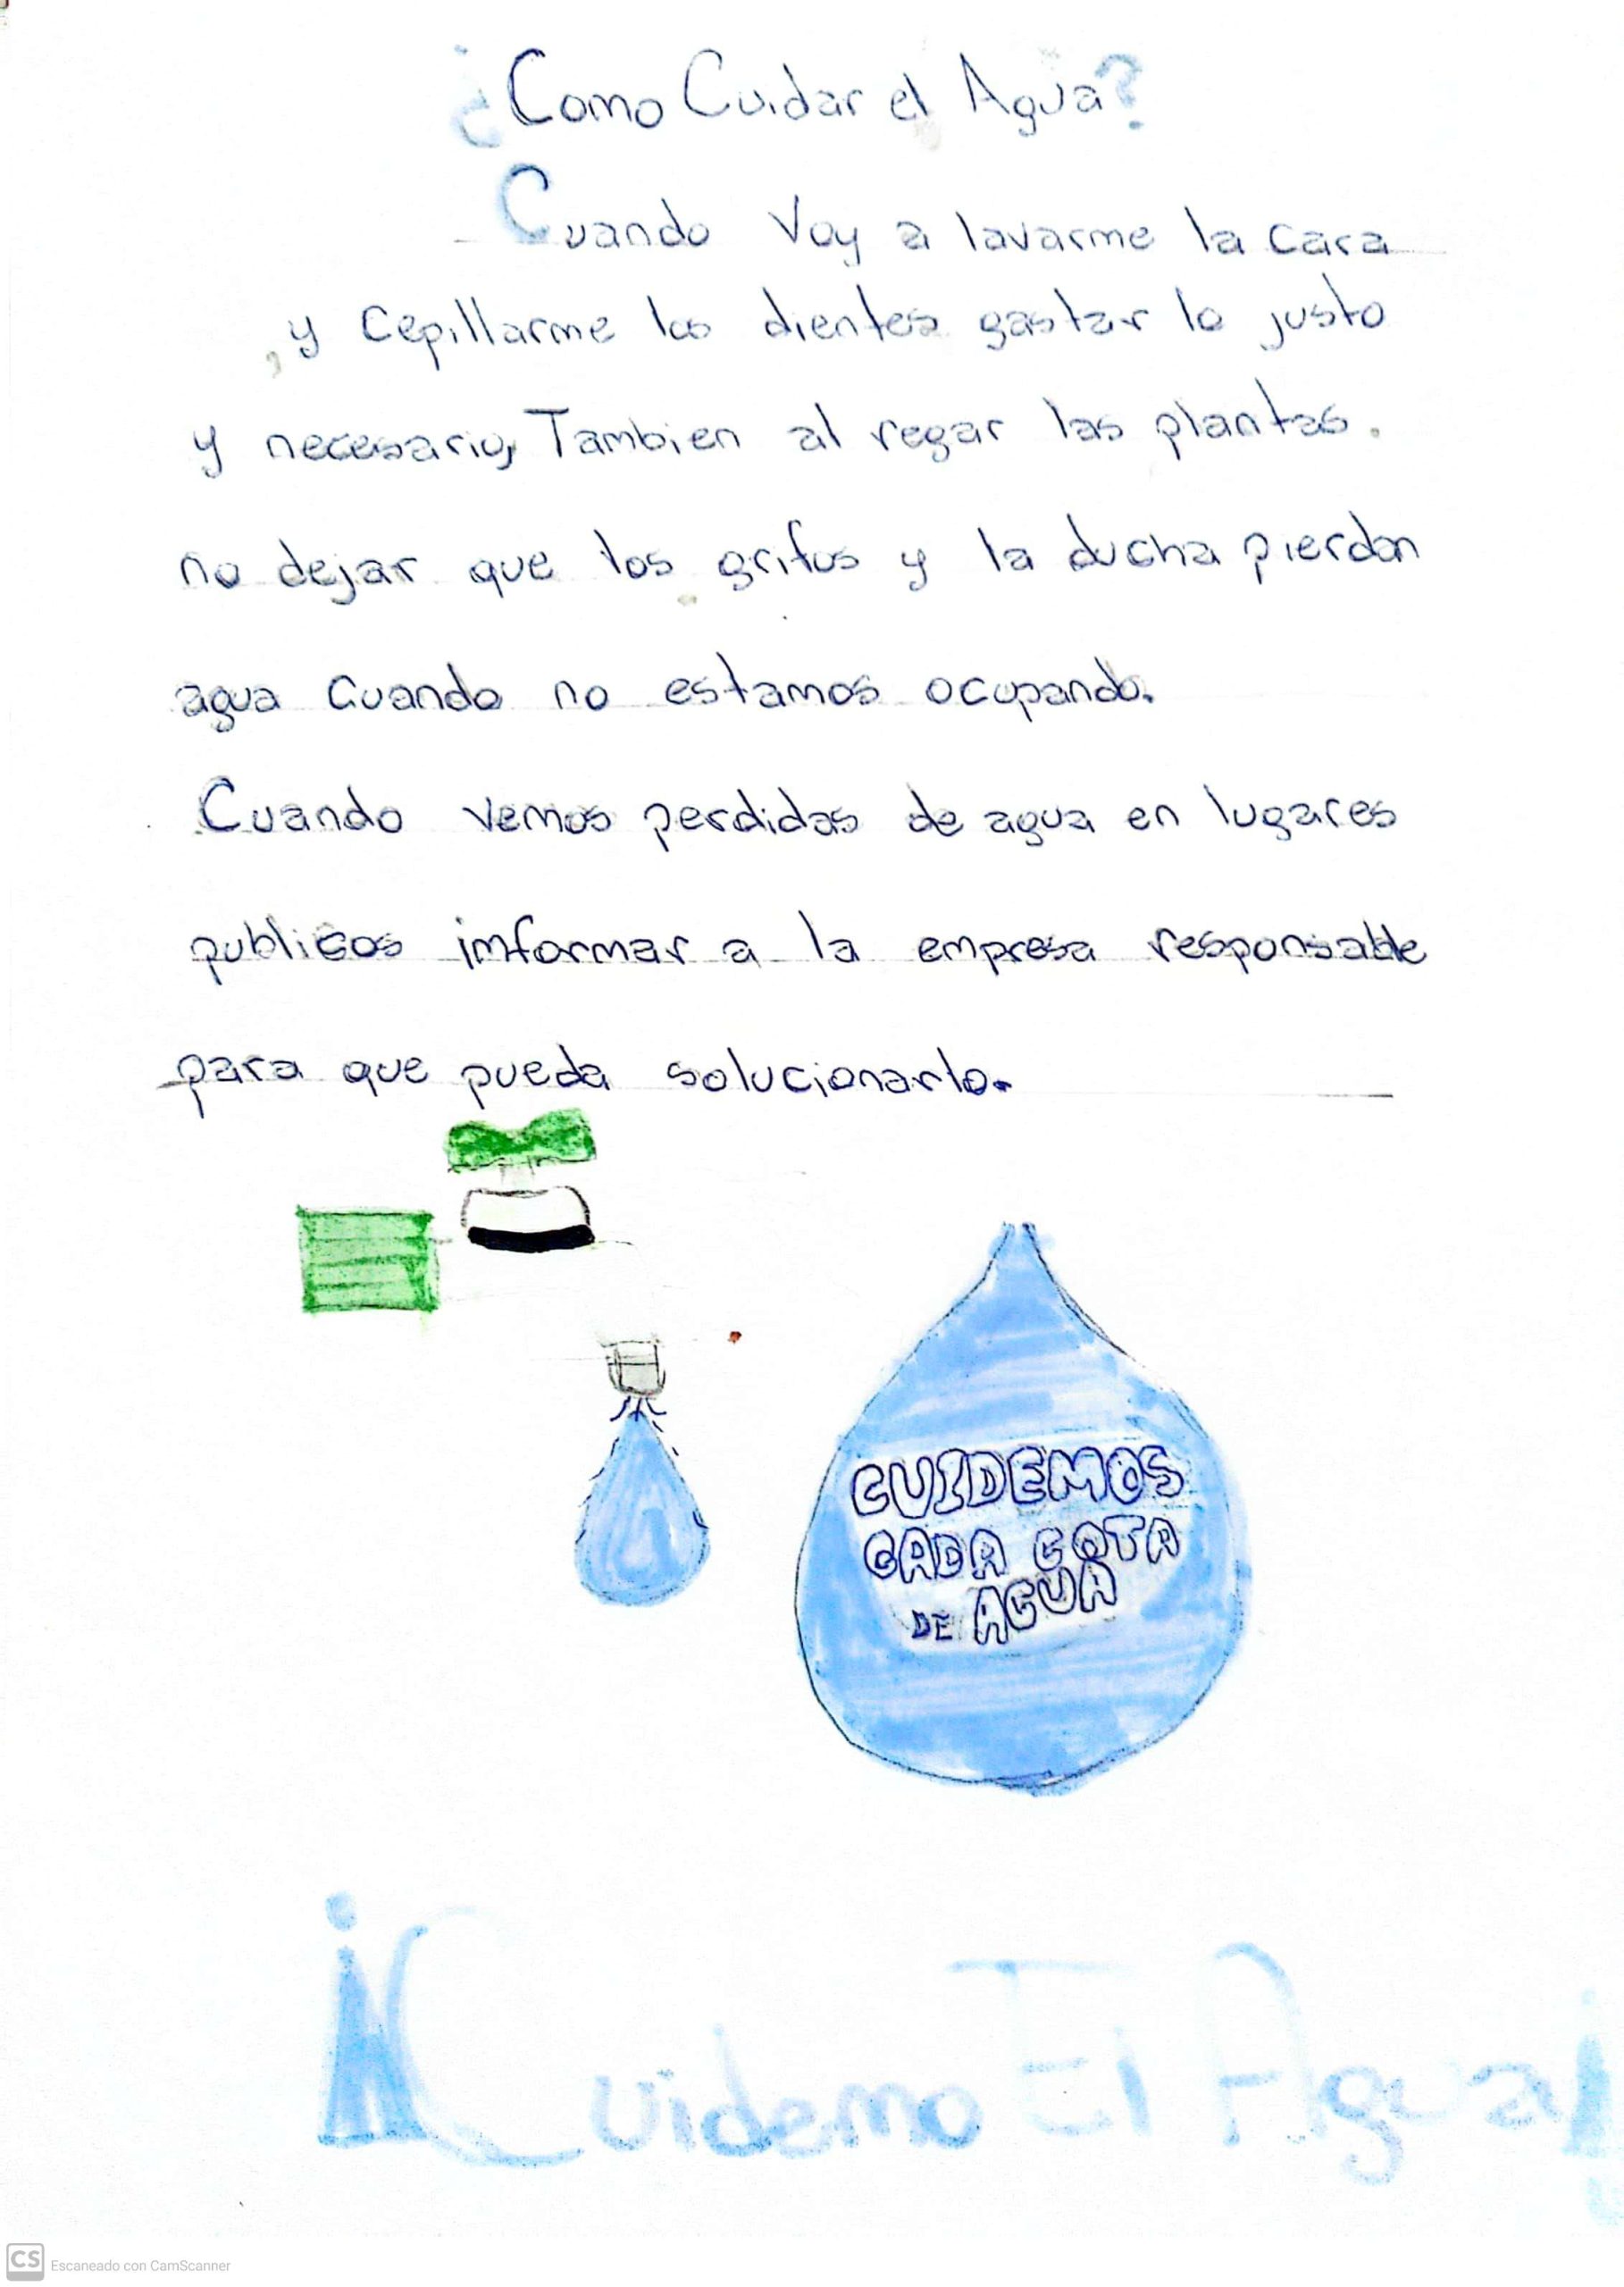 ¿Como Cuidar el Agua?
Cuando Voy a lavarme la cara
, y Cepillarme los dientes gastar lo justo
y necesario, Tambien al regar las plantas.
no dejar que los grifos y la ducha pierdan
agua Cuando no estamos ocupando.
Cuando vemos perdidas de agua en lugares
publicos imformar a la empresa responsable
para que pueda solucionarlo.
CUIDEMOS
CADA GOTA
DE AGUA
¡Cuidemo El Agua!
CS Escaneado con CamScanner